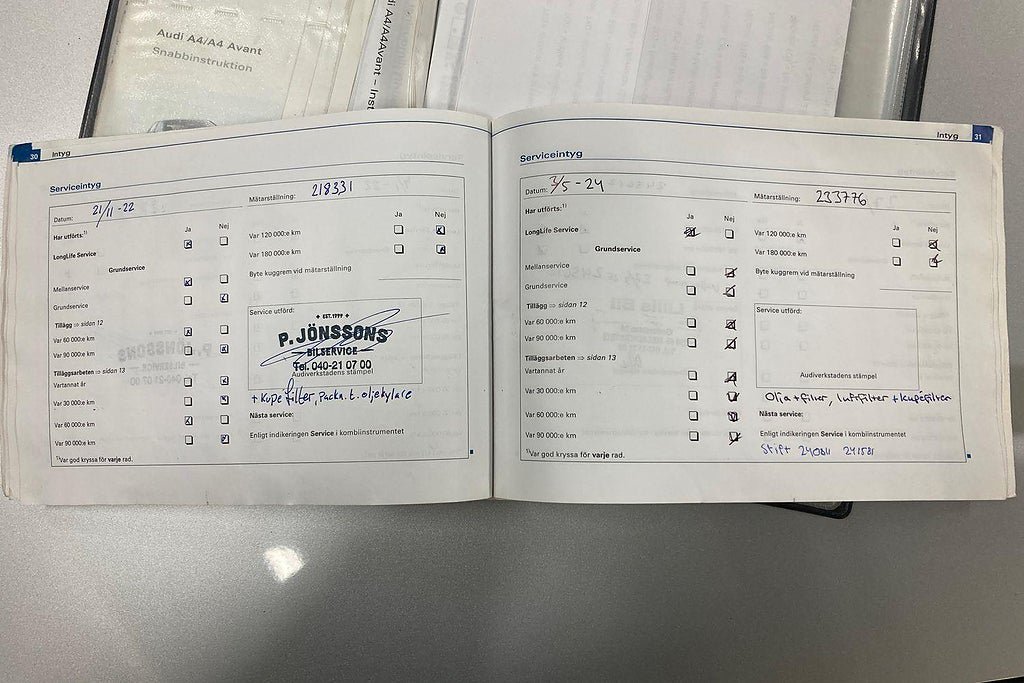 Audi A4/A4 Avant
Snabbinstruktion
Audi A4/A4Avant – Inst
30 Intyg
Serviceintyg
Datum: 21/11-22
Mätarställning: 218331
Har utförts:¹⁾
Ja Nej
LongLife Service
Grundservice
Mellanservice
Grundservice
Tillägg ⇒ sidan 12
Var 60 000:e km
Var 90 000:e km
Tilläggsarbeten ⇒ sidan 13
Vartannat år
Var 30 000:e km
Var 60 000:e km
Var 90 000:e km
¹⁾Var god kryssa för varje rad.
Ja Nej
Var 120 000:e km
Var 180 000:e km
Byte kuggrem vid mätarställning
Service utförd:
EST.1999
P. JÖNSSONS
BILSERVICE
Tel. 040-21 07 00
Audiverkstadens stämpel
+ Kupefilter, Packn. t. oljekylare
Nästa service:
Enligt indikeringen Service i kombiinstrumentet
Intyg 31
Serviceintyg
Datum: 3/5-24
Mätarställning: 233776
Har utförts:¹⁾
Ja Nej
LongLife Service
Grundservice
Mellanservice
Grundservice
Tillägg ⇒ sidan 12
Var 60 000:e km
Var 90 000:e km
Tilläggsarbeten ⇒ sidan 13
Vartannat år
Var 30 000:e km
Var 60 000:e km
Var 90 000:e km
¹⁾Var god kryssa för varje rad.
Ja Nej
Var 120 000:e km
Var 180 000:e km
Byte kuggrem vid mätarställning
Service utförd:
Audiverkstadens stämpel
Olja+filter, luftfilter + kupéfilter
Nästa service:
Enligt indikeringen Service i kombiinstrumentet